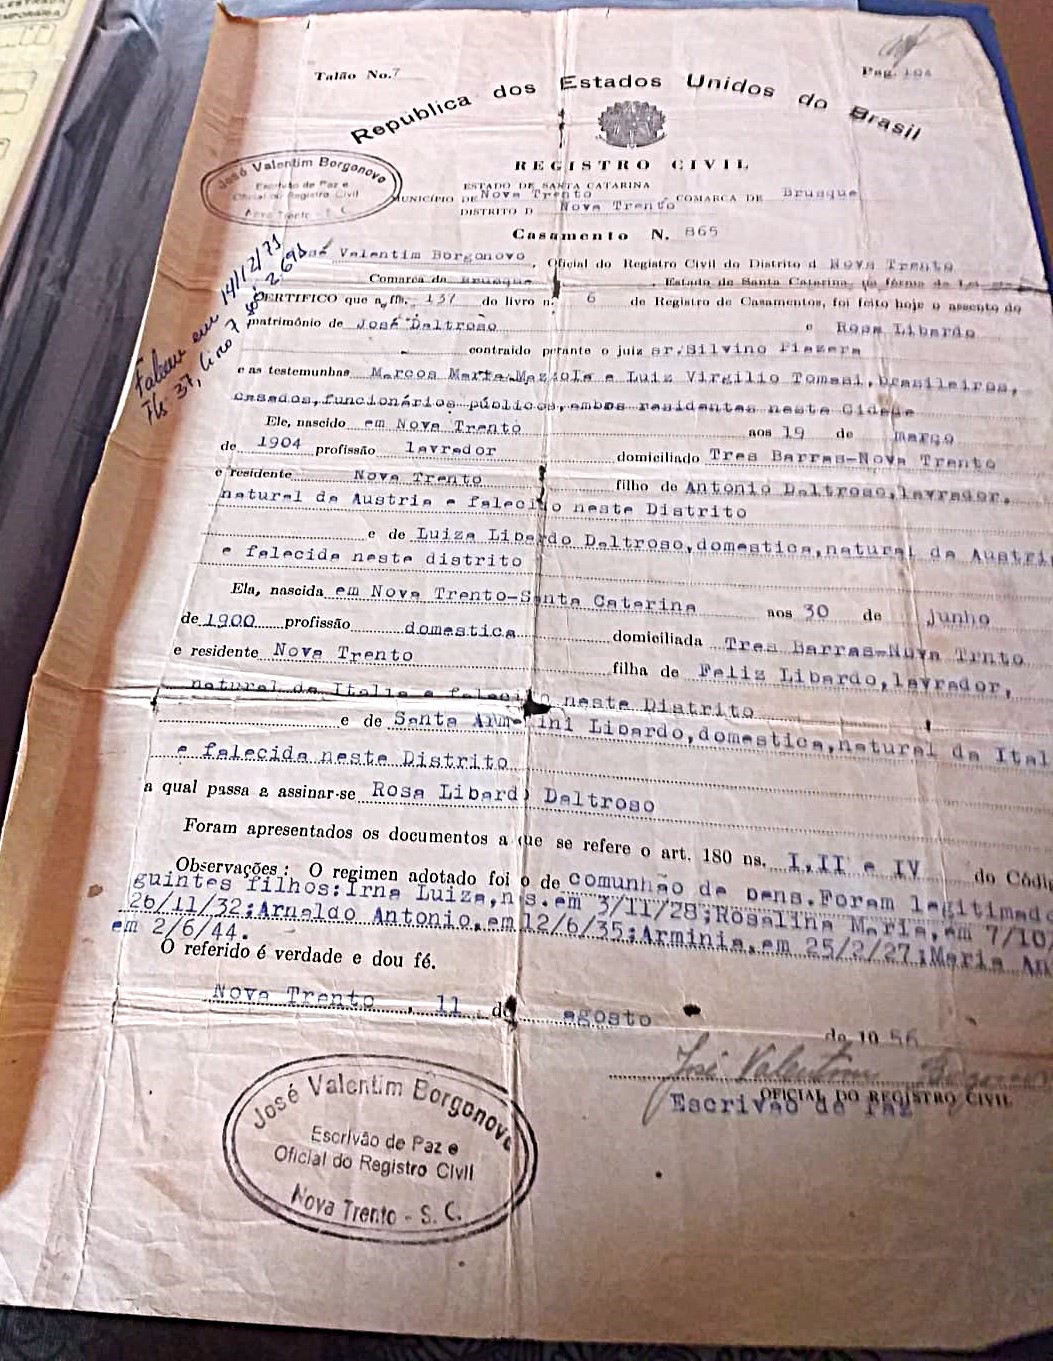 Talão No. 7
Pag. 104
Republica dos Estados Unidos do Brasil
REGISTRO CIVIL
José Valentim Borgonovo
Escrivão de Paz e
Oficial do Registro Civil
Nova Trento - S. C.
ESTADO DE SANTA CATARINA
MUNICÍPIO DE Nova Trento COMARCA DE Brusque
DISTRITO D Nova Trento
Casamento N. 865
José Valentim Borgonovo, Oficial do Registro Civil do Distrito d Nova Trento
Comarca de Brusque, Estado de Santa Catarina, na fórma da Lei
CERTIFICO que a fls. 137 do livro n. 6 de Registro de Casamentos, foi feito hoje o assento do
matrimônio de José Daltroso e Rosa Libardo
contraido perante o juiz sr.Silvino Piazera
e as testemunhas Marcos Marta Mazzola e Luiz Virgilio Tomasi,brasileiros,
casados,funcionários públicos,ambos residentes neste Cidade
Ele, nascido em Nova Trento aos 19 de março
de 1904 profissão lavrador domiciliado Tres Barras-Nova Trento
e residente Nova Trento filho de Antonio Daltroso,lavrador,
natural da Austria e falecido neste Distrito
e de Luiza Libardo Daltroso,domestica,natural da Austri
e falecida neste distrito
Ela, nascida em Nova Trento-Santa Catarina aos 30 de junho
de 1900 profissão domestica domiciliada Tres Barras-Nova Trnto
e residente Nova Trento filha de Feliz Libardo,lavrador,
natural da Italia e falecido neste Distrito
e de Santa Libardo,domestica,natural da Ital
e falecida neste Distrito
a qual passa a assinar-se Rosa Libardo Daltroso
Foram apresentados os documentos a que se refere o art. 180 ns. I,II e IV do Códig
Observações: O regimen adotado foi o de comunhão de bens.Foram legitimado
guintes filhos:Irna Luiza,ns.em 3/11/28;Rosalina Maria,em 7/10/
26/11/32;Arnaldo Antonio,em 12/6/35;Arminia,em 25/2/27;Maria An
em 2/6/44.
O referido é verdade e dou fé.
Nova Trento, 11 de agosto de 1956
José Valentim Borgonovo
OFICIAL DO REGISTRO CIVIL
Escrivão de Paz
José Valentim Borgonovo
Escrivão de Paz e
Oficial do Registro Civil
Nova Trento - S. C.
Faleceu em 14/12/71
Fls 37, livro 7 sob 2.691